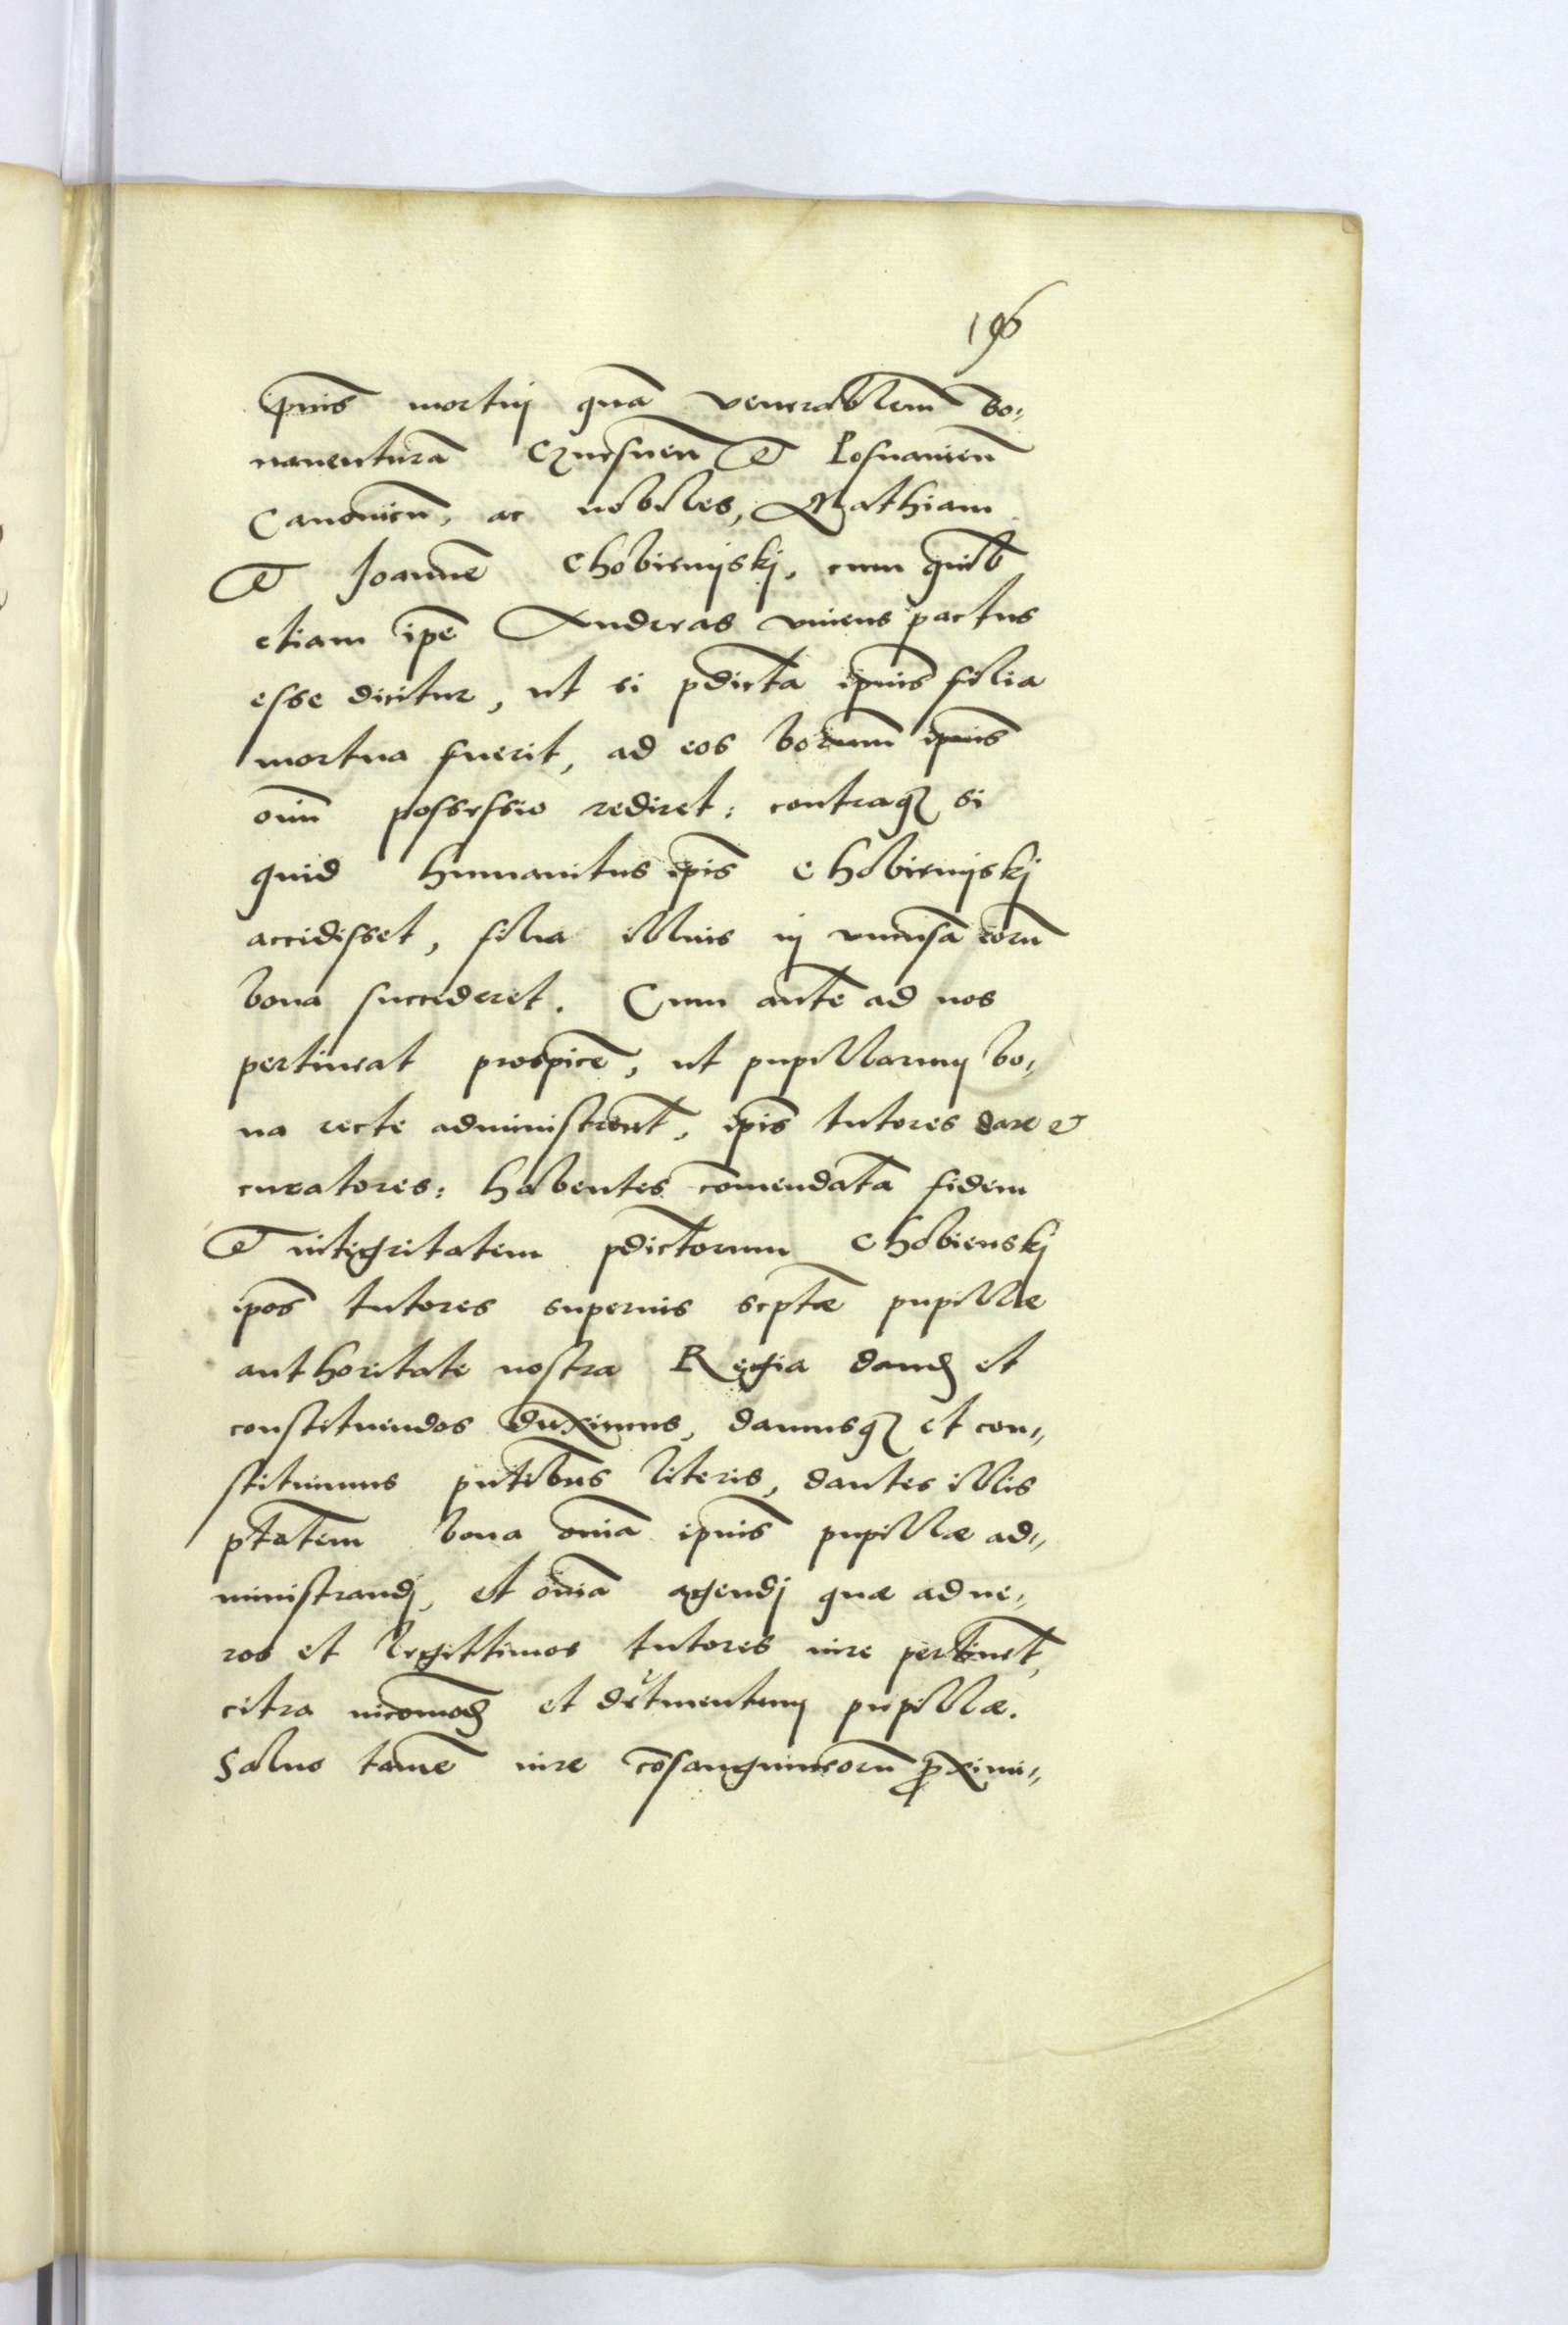 196
ipius mortuj quā venerabilem̄ Bo,
nauenturā Gznesnen̄ et Posnanien̄
Canonicū, ac nobiles, Mathiam
et Joannē Chobienijskj, cum quib
etiam ipē Anderas viuens pactus
esse dicitur, ut si pdicta ipius filia
mortua fuerit, ad eos bonorum ipius
oīm possessio rediret: contraq₃ si
quid humanitus ipīs Chobienijskj
accidisset, filia illius in vniuersā eorū
bona succederet. Cum autē ad nos
pertineat prospicē, ut pupillarum bo,
na recte administrent, ipīs tutores dare et
curatores: habentes comendatā fidem
et integritatem pdictorum Chobienskj
ipos tutores superius scptæ pupillæ
authoritate nostra Regia dand et
constituendos duximus, damusq₃ et con,,
stituimus pntibus literis, dantes illis
ptatem bona oīnia ipius pupillæ ad,,
ministrandj, et oīnia agendj quæ ad ue,
ros et legittimos tutores iure pertinet,
citra incomod et detrimentum pupillæ.
Saluo tamē iure cōsanguineorū proximi,,